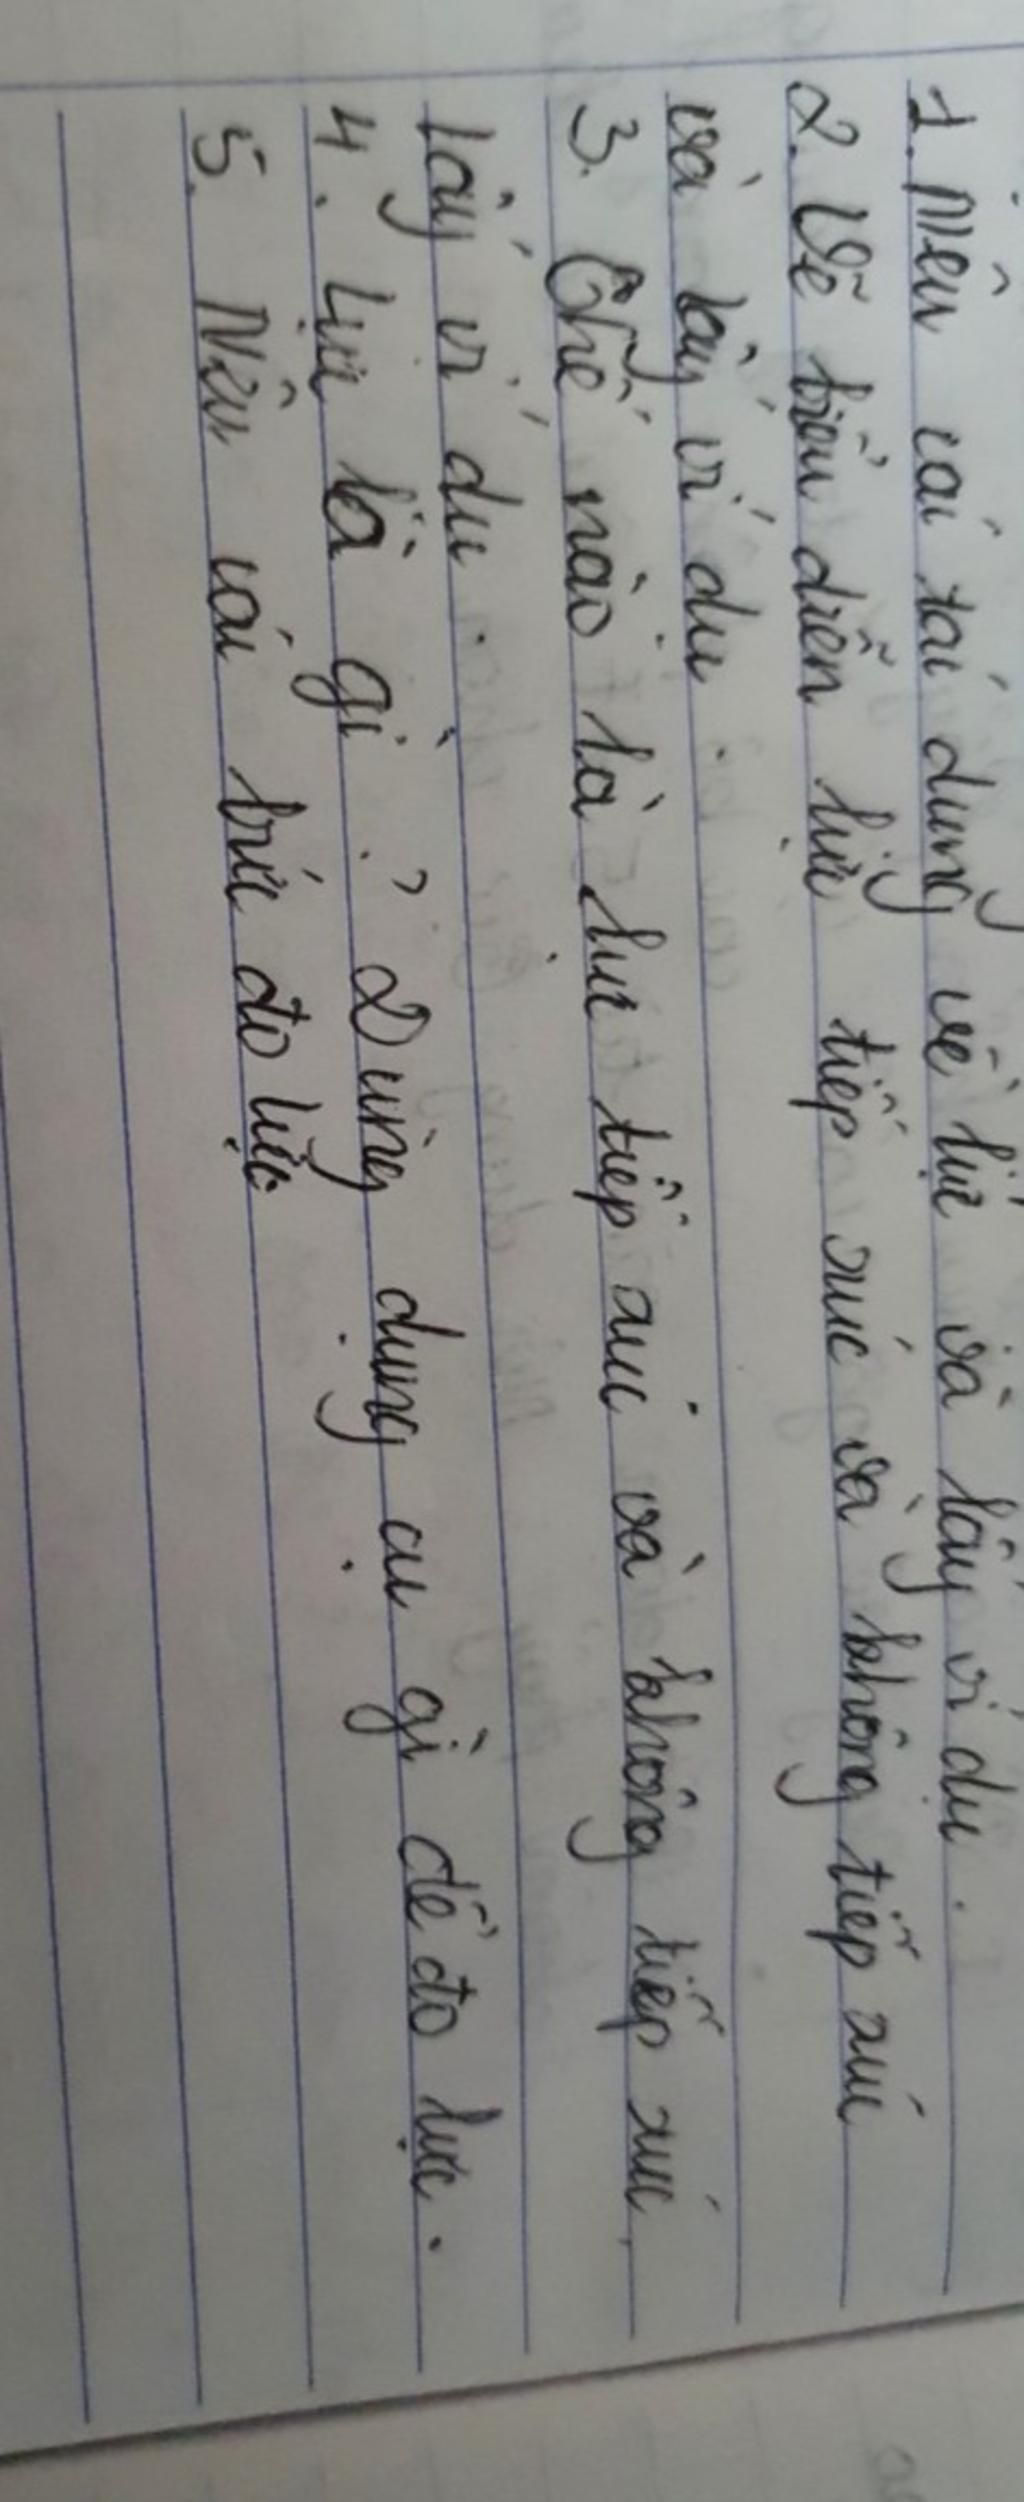 1. Nêu cái tác dụng về lực và lấy ví dụ.
2. Vẽ biểu diễn lực tiếp xúc và không tiếp xúc
và lấy ví dụ.
3. Thế nào là lực tiếp xúc và không tiếp xúc,
lấy ví dụ.
4. Lực là gì? Dùng dụng cụ gì để đo lực.
5. Nêu các bước đo lực